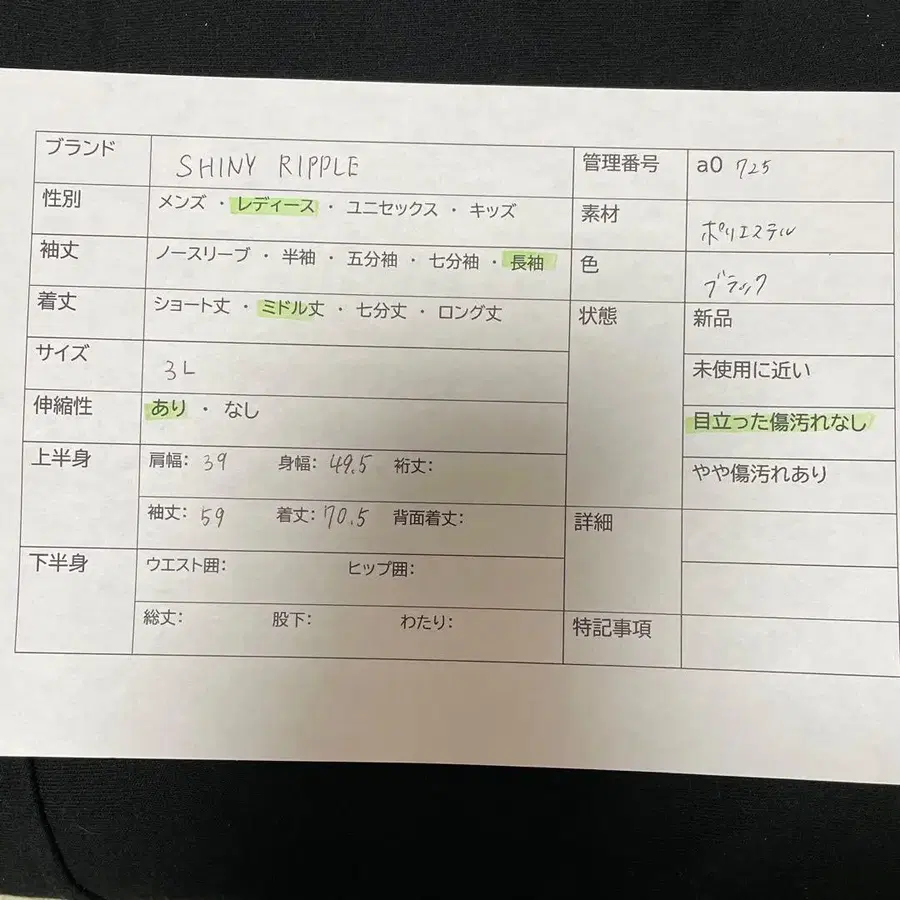 ブランド SHINY RIPPLE 管理番号 a0 725
性別 メンズ ・ レディース ・ ユニセックス ・ キッズ 素材 ポリエステル
袖丈 ノースリーブ ・ 半袖 ・ 五分袖 ・ 七分袖 ・ 長袖 色 ブラック
着丈 ショート丈 ・ ミドル丈 ・ 七分丈 ・ ロング丈 状態 新品
サイズ 3L 未使用に近い
伸縮性 あり ・ なし 目立った傷汚れなし
上半身 肩幅: 39 身幅: 49.5 裄丈: やや傷汚れあり
袖丈: 59 着丈: 70.5 背面着丈: 詳細
下半身 ウエスト囲: ヒップ囲:
総丈: 股下: わたり: 特記事項